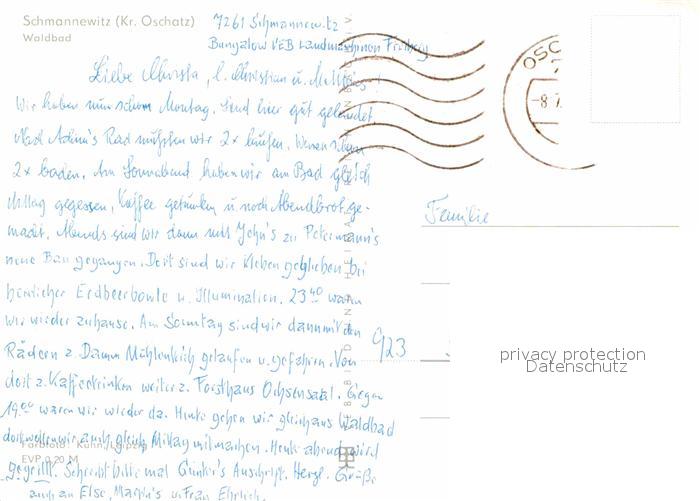 Schmannewitz (Kr. Oschatz)
Waldbad
7261 Schmannewitz
Bungalow VEB Landmaschinen Freiberg
Liebe Christa, l. Christian u. Matthias!
Wir haben nun schon Montag. Sind hier gut gelandet
Rad mußten wir 2x laufen. Waren schon
2x baden. Am Sonnabend haben wir am Bad gleich
Mittag gegessen, Kaffee getrunken u. noch Abendbrot ge-
macht. Abends sind wir dann mit John's zu Petermann's
neue Bau gegangen. Dort sind wir kleben geblieben bei
herrlicher Erdbeerbowle u. Illumination. 23⁴⁰ waren
wir wieder zuhause. Am Sonntag sind wir dann mit den
Rädern z. Damm Mühlenteich gelaufen u. gefahren. Von
dort z. Kaffeetrinken weiter z. Forsthaus Ochsensaal. Gegen
19⁰⁰ waren wir wieder da. Heute gehen wir gleich aus Waldbad
dort wollen wir auch gleich Mittag mitmachen. Heute abend wird
gegrillt. Schreibt bitte mal Günter's Anschrift. Herzl. Grüße
auch an Else, Martin's u. Frau Ehrlich.
Farbfoto: Kühn, Leipzig
EVP 0,20 M
OSC
-8.7.
Familie
923
privacy protection
Datenschutz